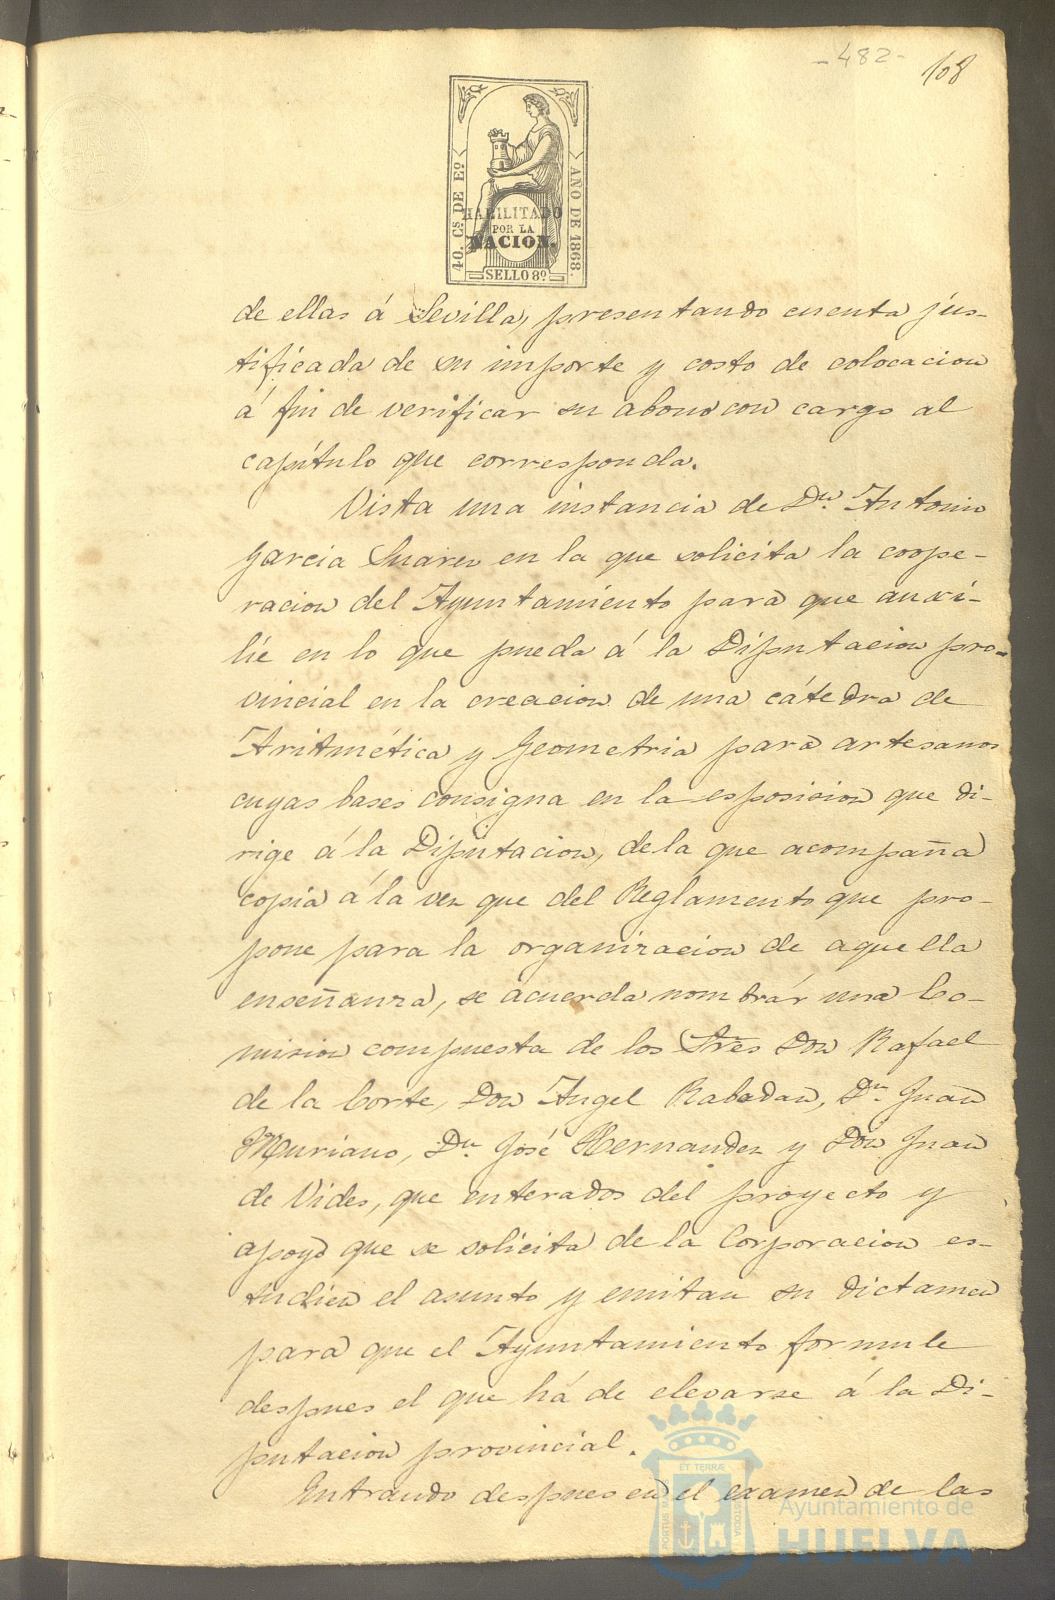 -482-
108
40. Cs. DE Eo.
AÑO DE 1868.
HABILITADO
POR LA
NACION.
SELLO 8º
de ellas á Sevilla, presentando cuenta jus-
tificada de su importe y costo de colocacion
á fin de verificar su abono con cargo al
capítulo que corresponda.
Vista una instancia de Dn. Antonio
Garcia Suarez en la que solicita la coope-
racion del Ayuntamiento para que auxi-
lie en lo que pueda á la Diputacion pro-
vincial en la creacion de una cátedra de
Aritmética y Geometria para artesanos
cuyas bases consigna en la esposicion que di-
rige á la Diputacion, de la que acompaña
copia á la vez que del Reglamento que pro-
pone para la organizacion de aquella
enseñanza, se acuerda nombrár una Co-
mision compuesta de los Sres Don Rafael
de la Corte, Don Angel Rabadan, Dn. Juan
Muriano, Dn. José Hernandez y Don Juan
de Vides, que enterados del proyecto y
apoyo que se solicita de la Corporacion es-
tudien el asunto y emitan su dictamen
para que el Ayuntamiento formule
despues el que há de elevarse á la Di-
putacion provincial.
Entrando despues en el examen de las
ET TERRÆ
PORTUS MARIS
CUSTODIA
Ayuntamiento de
HUELVA